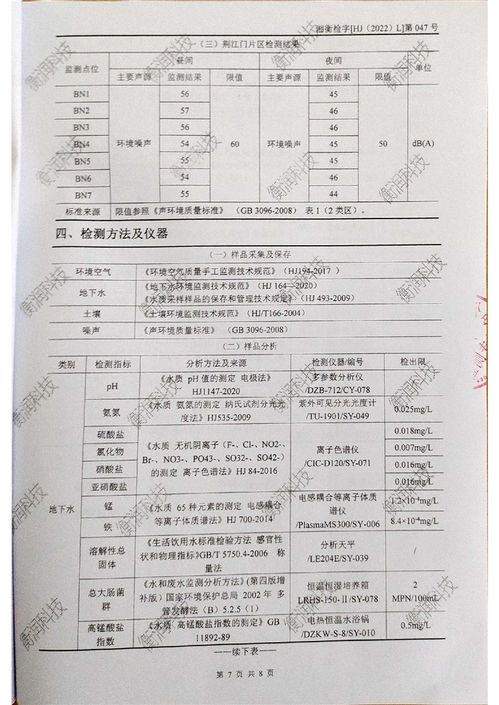 图衡检字[HJ（2022）L]第 047 号
（三）荆江门片区检测结果
监测点位 昼间 夜间 单位
主要声源 监测结果 限值 主要声源 监测结果 限值
BN1 56 45
BN2 57 46
BN3 56 46
BN4 环境噪声 54 60 环境噪声 45 50 dB(A)
BN5 55 45
BN6 54 46
BN7 55 44
标准来源 限值参照《声环境质量标准》（GB 3096-2008） 表 1（2 类区）。
四、检测方法及仪器
（一）样品采集及保存
环境空气 《环境空气质量手工监测技术规范》（HJ194-2017 ）
地下水 《地下水环境监测技术规范》（HJ 164—2020）
《水质采样样品的保存和管理技术规定》（HJ 493-2009）
土壤 《土壤环境监测技术规范》（HJ/T166-2004）
噪声 《声环境质量标准》 （GB 3096-2008）
（二）样品分析
类别 检测指标 分析方法及来源 检测仪器/编号 检出限
地下水
pH 《水质 pH 值的测定 电极法》 多参数分析仪 /
HJ1147-2020 /DZB-712/CY-078
氨氮 《水质 氨氮的测定 纳氏试剂分光光 紫外可见分光光度计 0.025mg/L
度法》HJ535-2009 /TU-1901/SY-049
硫酸盐 0.018mg/L
氯化物 《水质 无机阴离子（F-、Cl-、NO2-、 离子色谱仪 0.007mg/L
硝酸盐 Br-、NO3-、PO43-、SO32-、SO42-） /CIC-D120/SY-071 0.016mg/L
亚硝酸盐 的测定 离子色谱法》HJ 84-2016 0.016mg/L
锰 《水质 65 种元素的测定 电感耦合 电感耦合等离子体质 1.2×10⁻⁴mg/L
铁 等离子体质谱法》HJ 700-2014 谱仪 /PlasmaMS300/SY-006 8.4×10⁻⁴mg/L
溶解性总 《生活饮用水标准检验方法 感官性 分析天平 /
固体 状和物理指标》GB/T 5750.4-2006 称 /LE204E/SY-039
量法
总大肠菌 《水和废水监测分析方法》(第四版增 恒温恒湿培养箱 2
群 补版）国家环境保护总局 2002 年 多 LRHS-150-Ⅱ/SY-078 MPN/100mL
管发酵法（B）5.2.5（1）
高锰酸盐 《水质 高锰酸盐指数的测定》GB 电热恒温水浴锅 0.5mg/L
指数 11892-89 /DZKW-S-8/SY-010
——续下表——
第 7 页 共 8 页
衡润科技